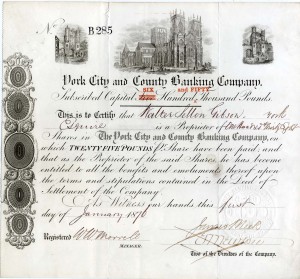 No B285
York City and County Banking Company.
SIX and FIFTY
Subscribed Capital Hundred Thousand Pounds.
This is to Certify that Walter York
Esquire is a Proprietor of
Shares in The York City and County Banking Company, on
which TWENTY FIVE POUNDS Share have been paid and
that as the Proprietor of the said Shares he has become
entitled to all the benefits and emoluments thereof upon
the terms and stipulations contained in the Deed of
Settlement of the Company
As Witness our hands this first
day of January 18
Registered
MANAGER.
Two of the Directors of the Company.